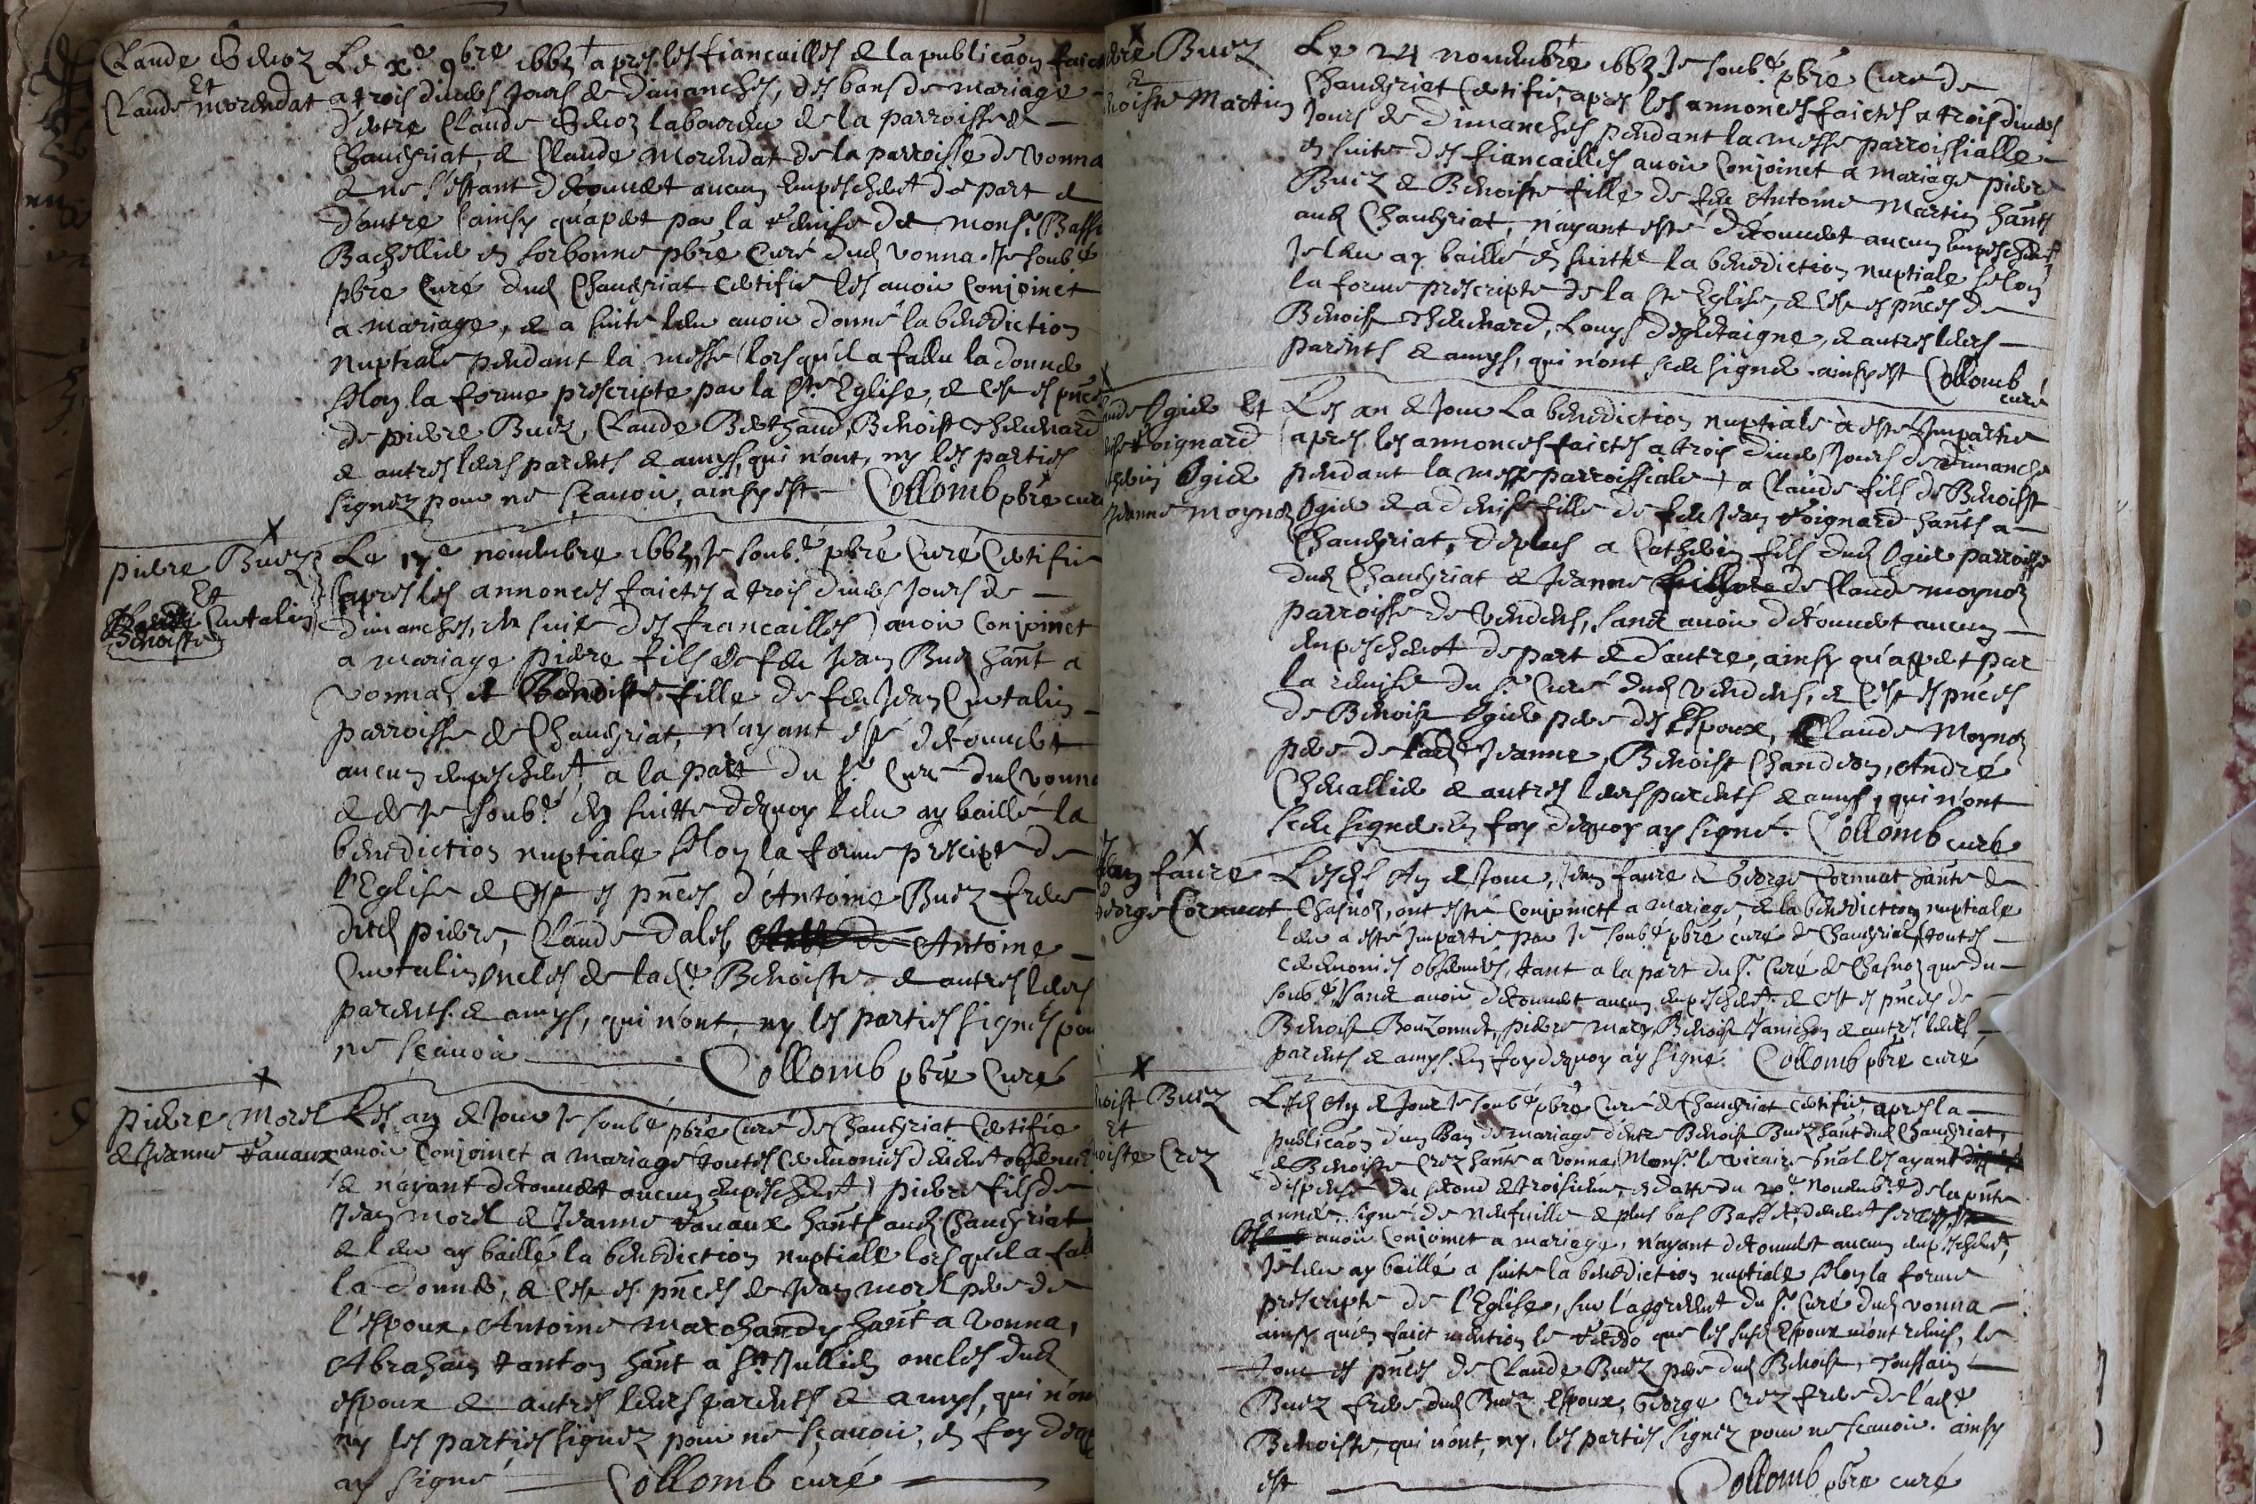 Claude
Et
Claude Morendat
Le xe 9bre 1663 apres les fiancailles & la publicaon faict
a trois divers Jours de dimanches, des bans de mariage
d'entre Claude laboureur de la parroisse de
Chaveyriat, & Claude Morendat de la parroisse de Vonna
& ne s'estant decouvert aucun empeschemt de part &
d'autre, ainsy qu'apert par la remise de Monsr.
Bachellier en sorbonne pbre Curé dud Vonna. Je soubé
pbre Curé dud Chaveyriat Certifie les avoir Conjoinct
a mariage, & a suite leur avoir donné la benediction
Nuptiale pendant la messe lors qu'il a fallu la donner
selon la forme prescripte par la Ste Eglise, & c'est es pnces
de pierre Buez, Claude Berthaud, Benoist Thevenard
& autres leurs parents & amys, qui n'ont, ny les parties
signez pour ne scavoir, ainsy est. Collomb pbre curé
pierre Buez
Et
Curtalin
Benoiste
Le 17e novembre 1663, Je soubé pbre Curé Certifie
(apres les annonces faictes a trois divers Jours de
dimanches, en suite des fiancailles) avoir Conjoinct
a mariage pierre fils de feu Jean Buez hant a
Vonna, et Benoiste fille de feu Jean Curtalin
parroisse de Chaveyriat, n'ayant esté decouvert
aucun empeschemt, a la part du sr. Curé dud Vonna
& de Je soubé, en suitte dequoy leur ay baillé la
benediction nuptiale selon la forme prescripte de
l'Eglise & c'est es pnces d'Antoine Buez frere
dud pierre, Claude Dalis Antoine
Curtalin oncles de lade Benoiste & autres leurs
parents & amys, qui n'ont, ny les parties signés pour
ne scavoir
Collomb pbre Curé
pierre Morel
& Jeanne Favaux
Les an & Jour Je soubé pbre Curé de Chaveyriat Certifie
avoir Conjoinct a mariage toutes Ceremonies
(& n'ayant decouvert aucun empeschemt) pierre fils de
Jean Morel & Jeanne Favaux hants aud Chaveyriat
& leur ay baillé la benediction nuptiale lors qu'il a fall
la donner, & c'est es pnces de Jean Morel pere de
l'espoux, Antoine Marchandy hant a Vonna,
Abraham Tanton hant a St Jullien oncles dud
espoux & autres leurs parents & amys, qui n'ont
ny les parties signez pour ne scavoir, en foy dequoy
ay signé Collomb curé
Buez
Et
Martin
Le 24 novembre 1663 Je soubé pbre Curé de
Chaveyriat Certifie, apres les annonces faictes a trois divers
Jours de dimanches pendant la messe parroissialle
en suite des fiancailles avoir Conjoinct a mariage pierre
Buez & Benoiste fille de feu Antoine Martin hants
aud Chaveyriat, n'ayant esté decouvert aucun empeschemt
Je leur ay baillé en suitte la benediction nuptiale selon
la forme prescripte de la ste Eglise, & c'est es pnces de
Benoist Thevenard, Louys & autres leurs
parents & amys, qui n'ont sceu signer. ainsy est Collomb
curé
Ogier Et
Poignard
Ogier
Jeanne Moynoz
Les an & Jour La benediction nuptiale à esté Impartie
(apres les annonces faictes a trois divers Jours de Dimanche
pendant la messe parroissiale) a Claude fils de Benoist
Ogier & a denise fille de feu Jean Poignard hants a
Chaveyriat, deplus a fils dud Ogier parroisse
dud Chaveyriat & Jeanne de Claude Moynoz
parroisse de Vendens, sans avoir decouvert aucun
empeschemt de part & d'autre, ainsy qu'appert par
la remise du sr. Curé dud Vendens, & C'est es pnces
de Benoist Ogier pere des Espoux, Claude Moynoz
pere de lade Jeanne, Benoist Chandron, André
Chevallier & autres leurs parents & amys, qui n'ont
sceu signer. En foy dequoy ay signé. Collomb curé
Jean Faure
&
George Cornuat
Lesds An & Jour, Jean Faure & George Cornuat hants de
Chasnoz, ont esté Conjoincts a mariage, & la benediction nuptiale
leur a esté Impartie par Je soubé pbre curé de Chaveyriat, (toutes
ceremonies observées, tant a la part du sr. Curé de Chasnoz que du
soubé) sans avoir decouvert aucun empeschemt. & c'est es pnces de
Benoist Bouzonnet, pierre Mary, Benoist Janichon & autres leurs
parents & amys. En foy dequoy ay signé Collomb pbre curé
Buez
Et
Crez
Lesds An & Jour Je soubé pbre Curé de Chaveyriat certifie, apres la
publicaon d'un Ban de mariage d'entre Benoist Buez hant dud Chaveyriat,
& Benoiste Crez hante a Vonna, Monsr. le vicaire gnal les ayant
dispensé du second & troisieme, en datte du 20e Novembre de la pnte
année. signé: de Neufville & plus bas Basset,
avoir Conjoinct a mariage, n'ayant decouvert aucun empeschemt,
Je leur ay baillé a suite la benediction nuptiale selon la forme
prescripte de l'Eglise, sur l'aggreemt du sr. Curé dud Vonna
ainsy qu'en faict mention le que les susd Espoux m'ont remis, le
tout es pnces de Claude Buez pere dud Benoist, Toussain
Buez frere dud Buez Espoux, George Crez frere de lade
Benoiste qui n'ont, ny, les parties signez pour ne scavoir. ainsy
est Collomb pbre curé